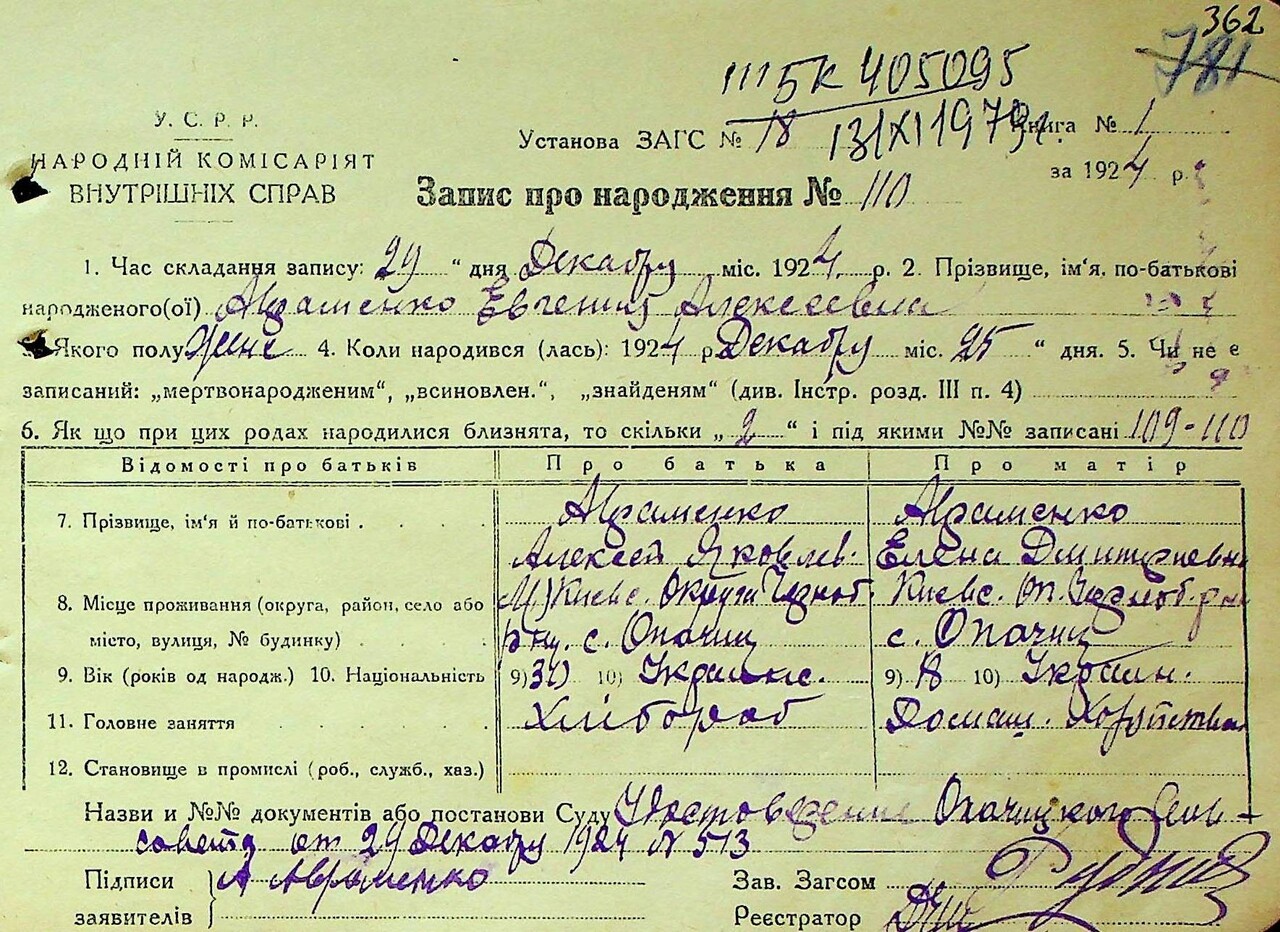 362
781
III БК 405095
У. С. Р. Р.
НАРОДНІЙ КОМІСАРІЯТ
ВНУТРІШНІХ СПРАВ
Установа ЗАГС № 18 13/XI 1979 г. Книга № 1
за 1924 р.
Запис про народження № 110
1. Час складання запису: 29 “ дня Декабру міс. 1924 р. 2. Прізвище, ім'я, по-батькові
народженого(ої) Авраменко Евгения Алексеевна
3. Якого полу жінс 4. Коли народився (лась): 1924 р. Декабру міс. 25 “ дня. 5. Чи не є
записаний: „мертвонародженим“, „всиновлен.“, „знайденям“ (див. Інстр. розд. III п. 4)
6. Як що при цих родах народилися близнята, то скільки „ 2 “ і під якими №№ записані 109-110
Відомості про батьків Про батька Про матір
7. Прізвище, ім'я й по-батькові . Авраменко Авраменко
Алексей Яковлев. Елена Дмитриевна
8. Місце проживання (округа, район, село або Киевс. Округи Черноб. Киевс. Оп. Черноб. р-на
місто, вулиця, № будинку) с. Опачиц с. Опачиц
9. Вік (років од народж.) 10. Національність 9) 30 10) Украинс. 9) 18 10) Украин.
11. Головне заняття Хлібороб Домаш. Хозяйства
12. Становище в промислі (роб., служб., хаз.)
Назви и №№ документів або постанови Суду Удостоверение Опачицкого Сель-
совета от 29 Декабру 1924 N 513
Підписи А Авраменко Зав. Загсом
заявителів Реєстратор